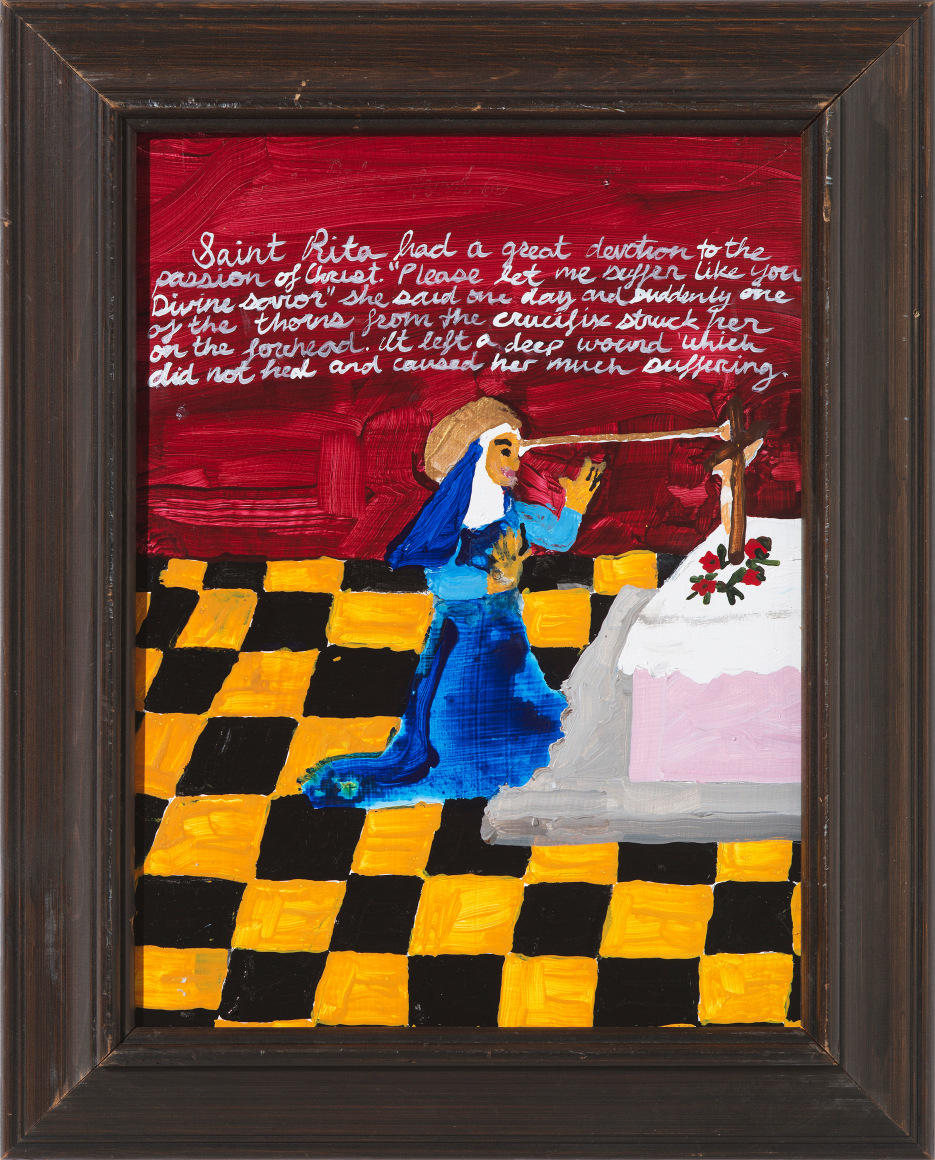 Saint Rita had a great devotion to the
passion of Christ. "Please let me suffer like you
Divine savior" she said one day and suddenly one
of the thorns from the crucifix struck her
on the forhead. It left a deep wound which
did not heal and caused her much suffering.